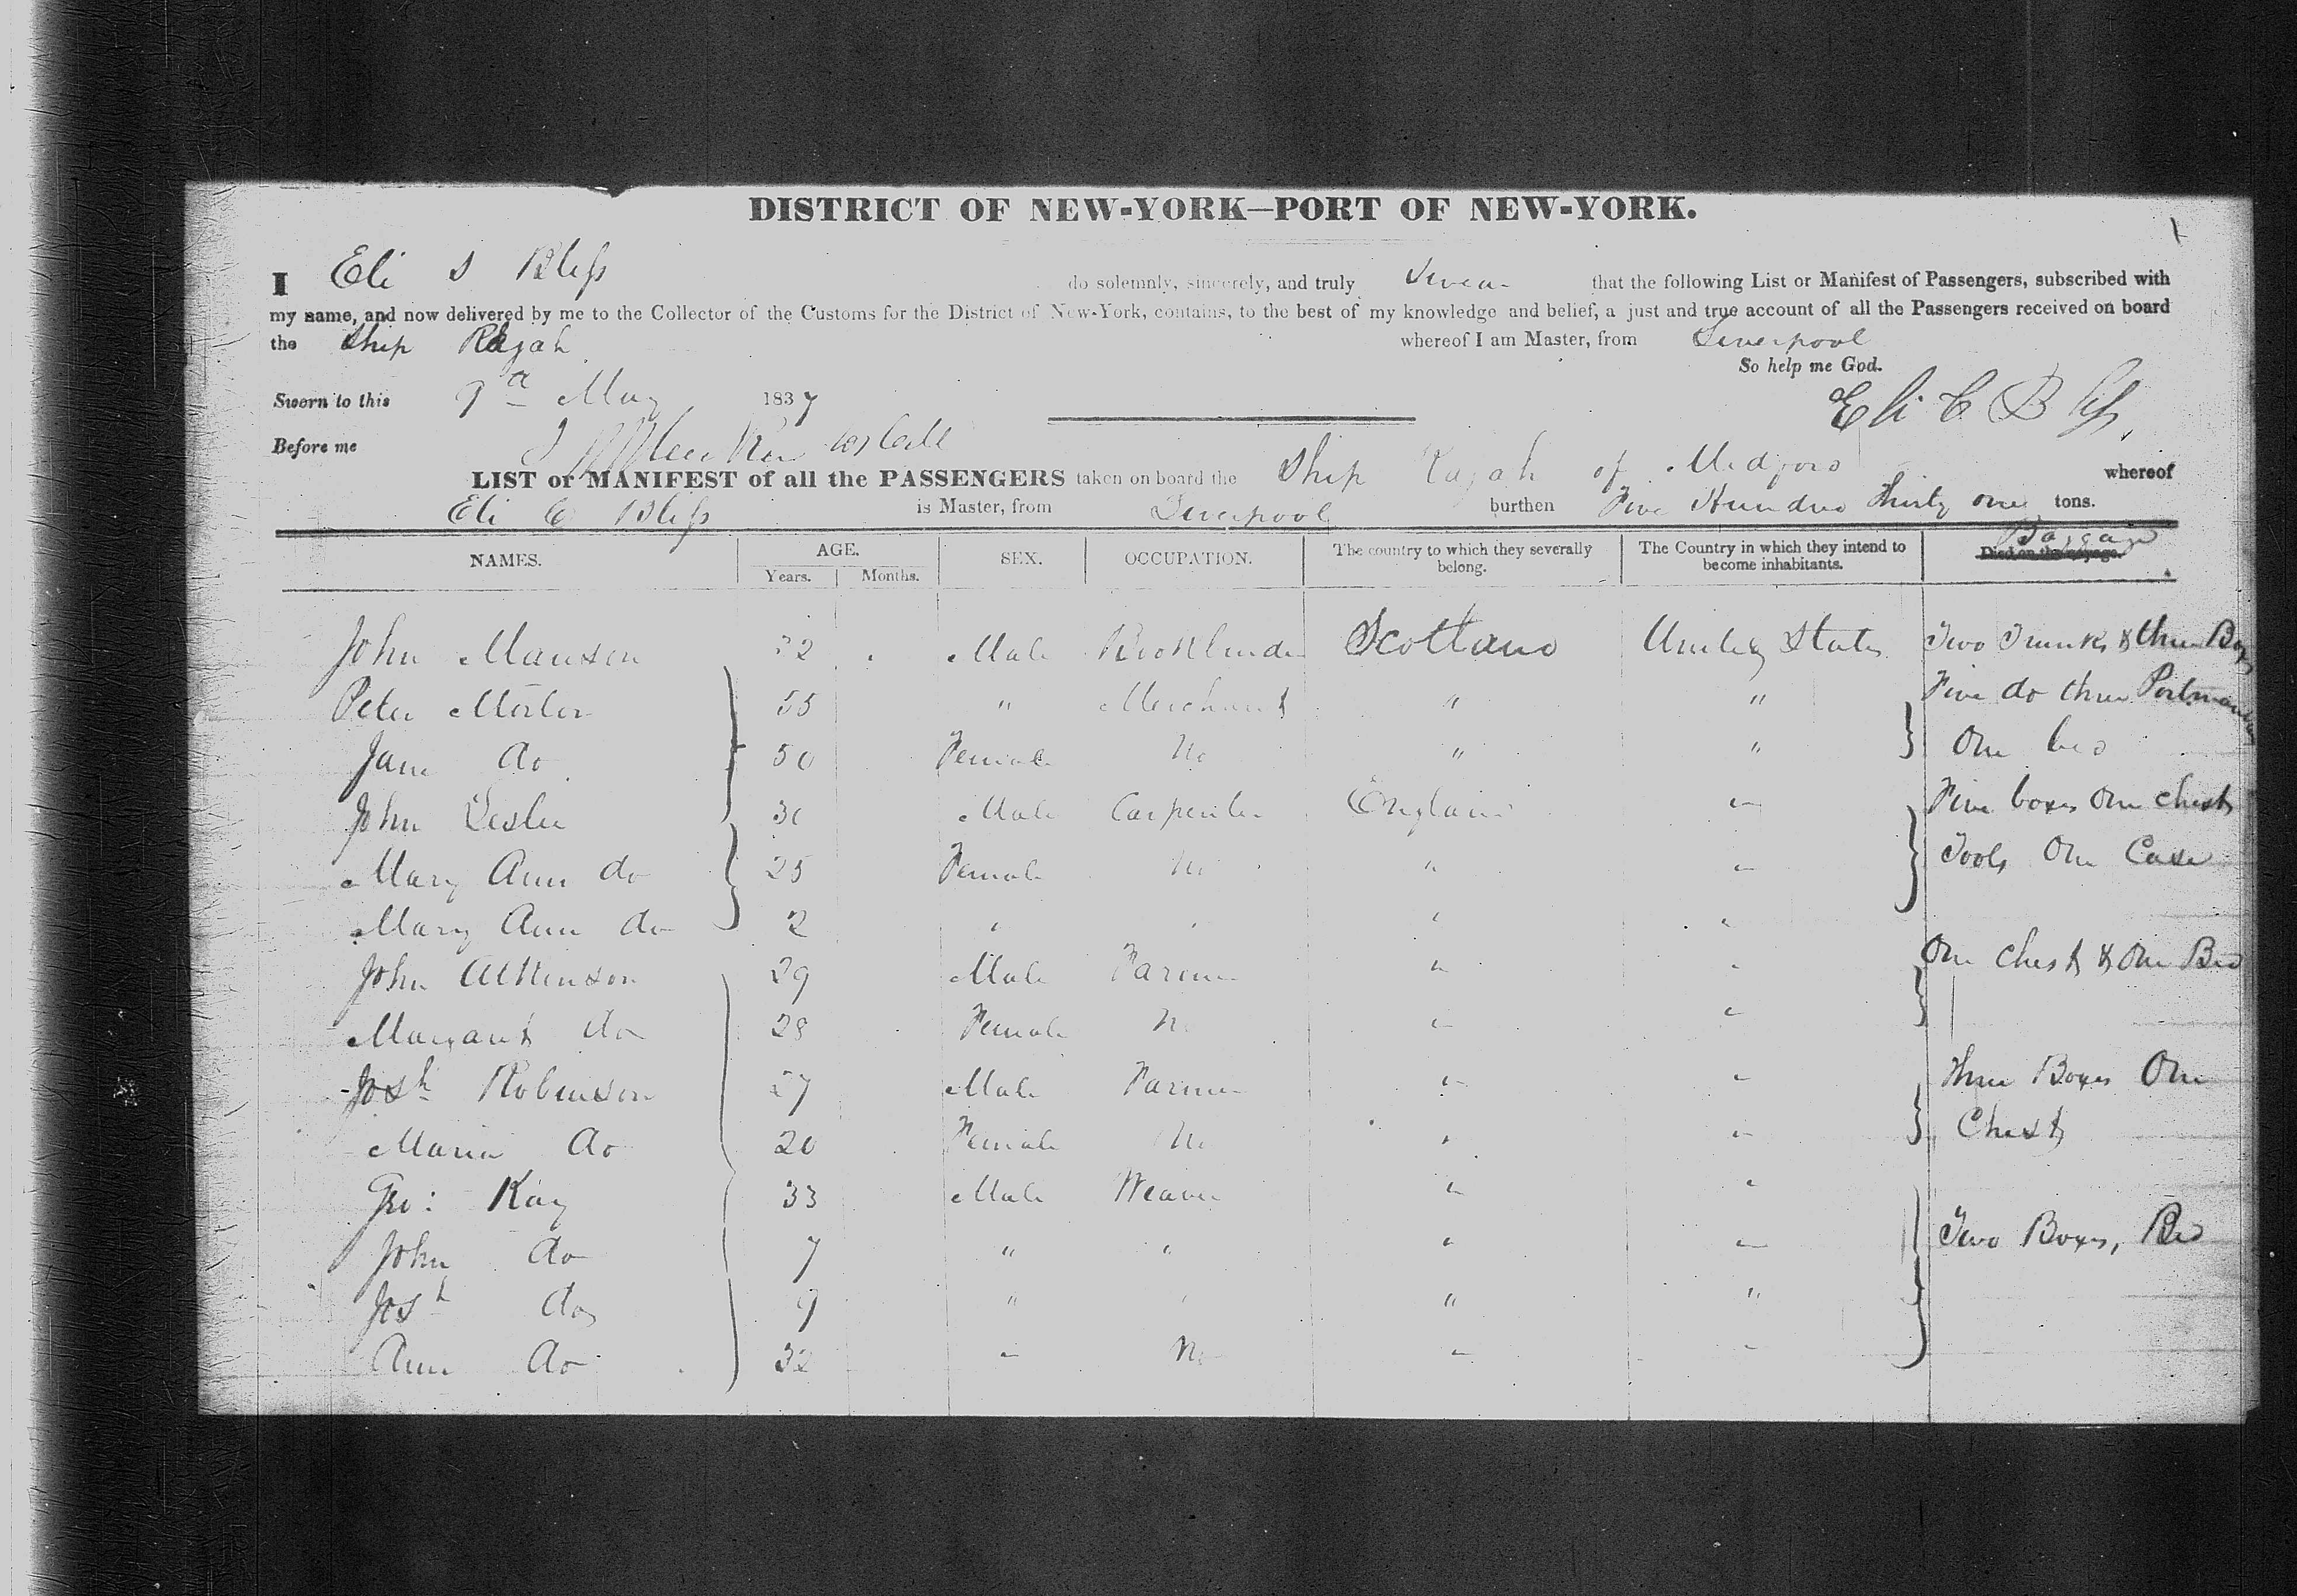 DISTRICT OF NEW-YORK—PORT OF NEW-YORK.
I Eli S Bliss do solemnly, sincerely, and truly Swear that the following List or Manifest of Passengers, subscribed with
my name, and now delivered by me to the Collector of the Customs for the District of New-York, contains, to the best of my knowledge and belief, a just and true account of all the Passengers received on board
the Ship Rajah whereof I am Master, from Liverpool
So help me God.
Sworn to this 9th May 1837
Eli C Bliss
Before me
LIST or MANIFEST of all the PASSENGERS taken on board the Ship Rajah of Medford whereof
Eli C Bliss is Master, from Liverpool burthen Five Hundred Thirty one tons.
NAMES. AGE. Years. Months. SEX. OCCUPATION. The country to which they severally belong. The Country in which they intend to become inhabitants. Died on the voyage. Baggage
John Manson 32 Male Bookbinder Scotland United States Two Trunks & three Boxes
Peter 55 " Merchant " " Five do three Portmanteaus
Jane do 50 Female No " " One bed
John Leslie 30 Male Carpenter England " Five boxes One chest
Mary Ann do 25 Female No " " Tools One Case
Mary Ann do 2 " " " "
John Atkinson 29 Male Farmer " " One Chest & One Bed
Margaret do 28 Female No " "
Josh Robinson 27 Male Farmer " " Three Boxes One
Maria do 20 Female No " " Chest
Geo: Kay 33 Male Weaver " "
John do 7 " " " " Two Boxes, Bed
Josh do 9 " " " "
Ann do 32 " No " "